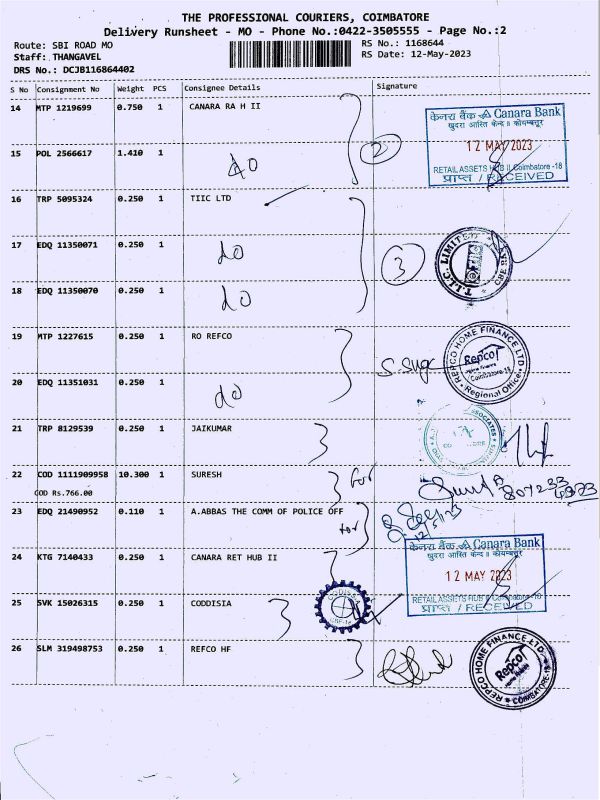 THE PROFESSIONAL COURIERS, COIMBATORE
Delivery Runsheet - MO - Phone No.:0422-3505555 - Page No.:2
Route: SBI ROAD MO
RS No.: 1168644
Staff: THANGAVEL
RS Date: 12-May-2023
DRS No.: DCJB116864402
S No Consignment No Weight PCS Consignee Details Signature
14 MTP 1219699 0.750 1 CANARA RA H II
केनरा बैंक Canara Bank
खुदरा आस्ति केन्द्र II कोयम्बत्तूर
12 MAY 2023
RETAIL ASSETS HUB II Coimbatore -18
प्राप्त / RECEIVED
15 POL 2566617 1.410 1 do
2
16 TRP 5095324 0.250 1 TIIC LTD
17 EDQ 11350071 0.250 1 do
3
T.I.I.C. LIMITED
CBE
18 EDQ 11350070 0.250 1 do
19 MTP 1227615 0.250 1 RO REFCO
REPCO HOME FINANCE LTD
Repco
Home Finance
Coimbatore-18
Regional Office
20 EDQ 11351031 0.250 1 do
21 TRP 8129539 0.250 1 JAIKUMAR
22 COD 1111909958 10.300 1 SURESH
for
COD Rs.766.00
23 EDQ 21490952 0.110 1 A.ABBAS THE COMM OF POLICE OFF
for
12/5/23
24 KTG 7140433 0.250 1 CANARA RET HUB II
केनरा बैंक Canara Bank
खुदरा आस्ति केन्द्र II कोयम्बत्तूर
12 MAY 2023
RETAIL ASSETS HUB II Coimbatore -18
प्राप्त / RECEIVED
25 SVK 15026315 0.250 1 CODDISIA
CODISSIA
CBE-18
26 SLM 319498753 0.250 1 REFCO HF
REPCO HOME FINANCE LTD
Repco
Home Finance
COIMBATORE-18